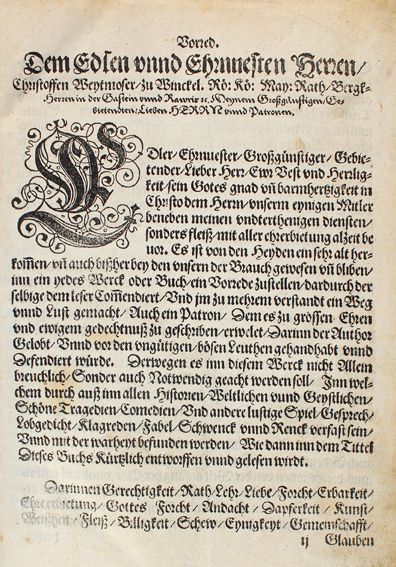 Vorred.
Dem Edlen vnnd Ehrnuesten Herren/
Christoffen Weytmoser/ zu Winckel. Rö: Kö: May: Rath/ Bergk-
Herren in der Gastein vnnd Rawriz ꝛc. Meynem Großgünstigen/ Ge-
bietendten/ Lieben HERRN vnnd Patronen.
EDler/ Ehrnuester/ Großgünstiger/ Gebie-
tender/ Lieber Herr/ Ewr Vest vnd Herrlig-
keit/ sein Gotes gnad vñ barmhertzigkeit in
Christo dem Herrn/ vnserm eynigen Mitler
beneben meinen vndterthenigen diensten/
sonders fleiß/ mit aller ehrerbietung alzeit be
uor. Es ist von den Heyden ein sehr alt her-
kom̃en/ vñ auch bißher bey den vnsern der Brauch gewesen vñ bliben/
inn ein yedes Werck oder Buch/ ein Vorrede zustellen/ dardurch der
selbige dem leser Commendiert/ Vnd jm zu mehrem verstandt ein Weg
vnnd Lust gemacht/ Auch ein Patron/ Dem es zu grössen Ehren
vnd ewigem gedechtnuß zu geschriben/ erwelet/ Darinn der Author
Gelobt/ Vnnd vor den vngütigen/ bösen Leuthen gehandhabt vnnd
Defendiert würde. Derwegen es inn diesem Werck nicht Allein
breuchlich/ Sonder auch Notwendig geacht werden soll/ Inn wel-
chem durch auß inn allen Historien/ Weltlichen vnnd Geystlichen/
Schöne Tragedien/ Comedien/ Vnd andere lustige Spiel/ Gesprech/
Lobgedicht/ Klagreden/ Fabel/ Schwenck vnnd Renck verfast sein/
Vnnd mit der warheyt befunden werden/ Wie dann inn dem Tittel
Dieses Buchs Kürtzlich entworffen vnnd gelesen wirdt.
Darinnen Gerechtigkeit/ Rath/ Lehr/ Liebe/ Forcht/ Erbarkeit/
Ehrerbietung/ Gottes Forcht/ Andacht/ Dapferkeit/ Kunst/
Weißheit/ Fleiß/ Billigkeit/ Schew/ Eynigkeyt/ Gemeinschafft/
ij Glauben